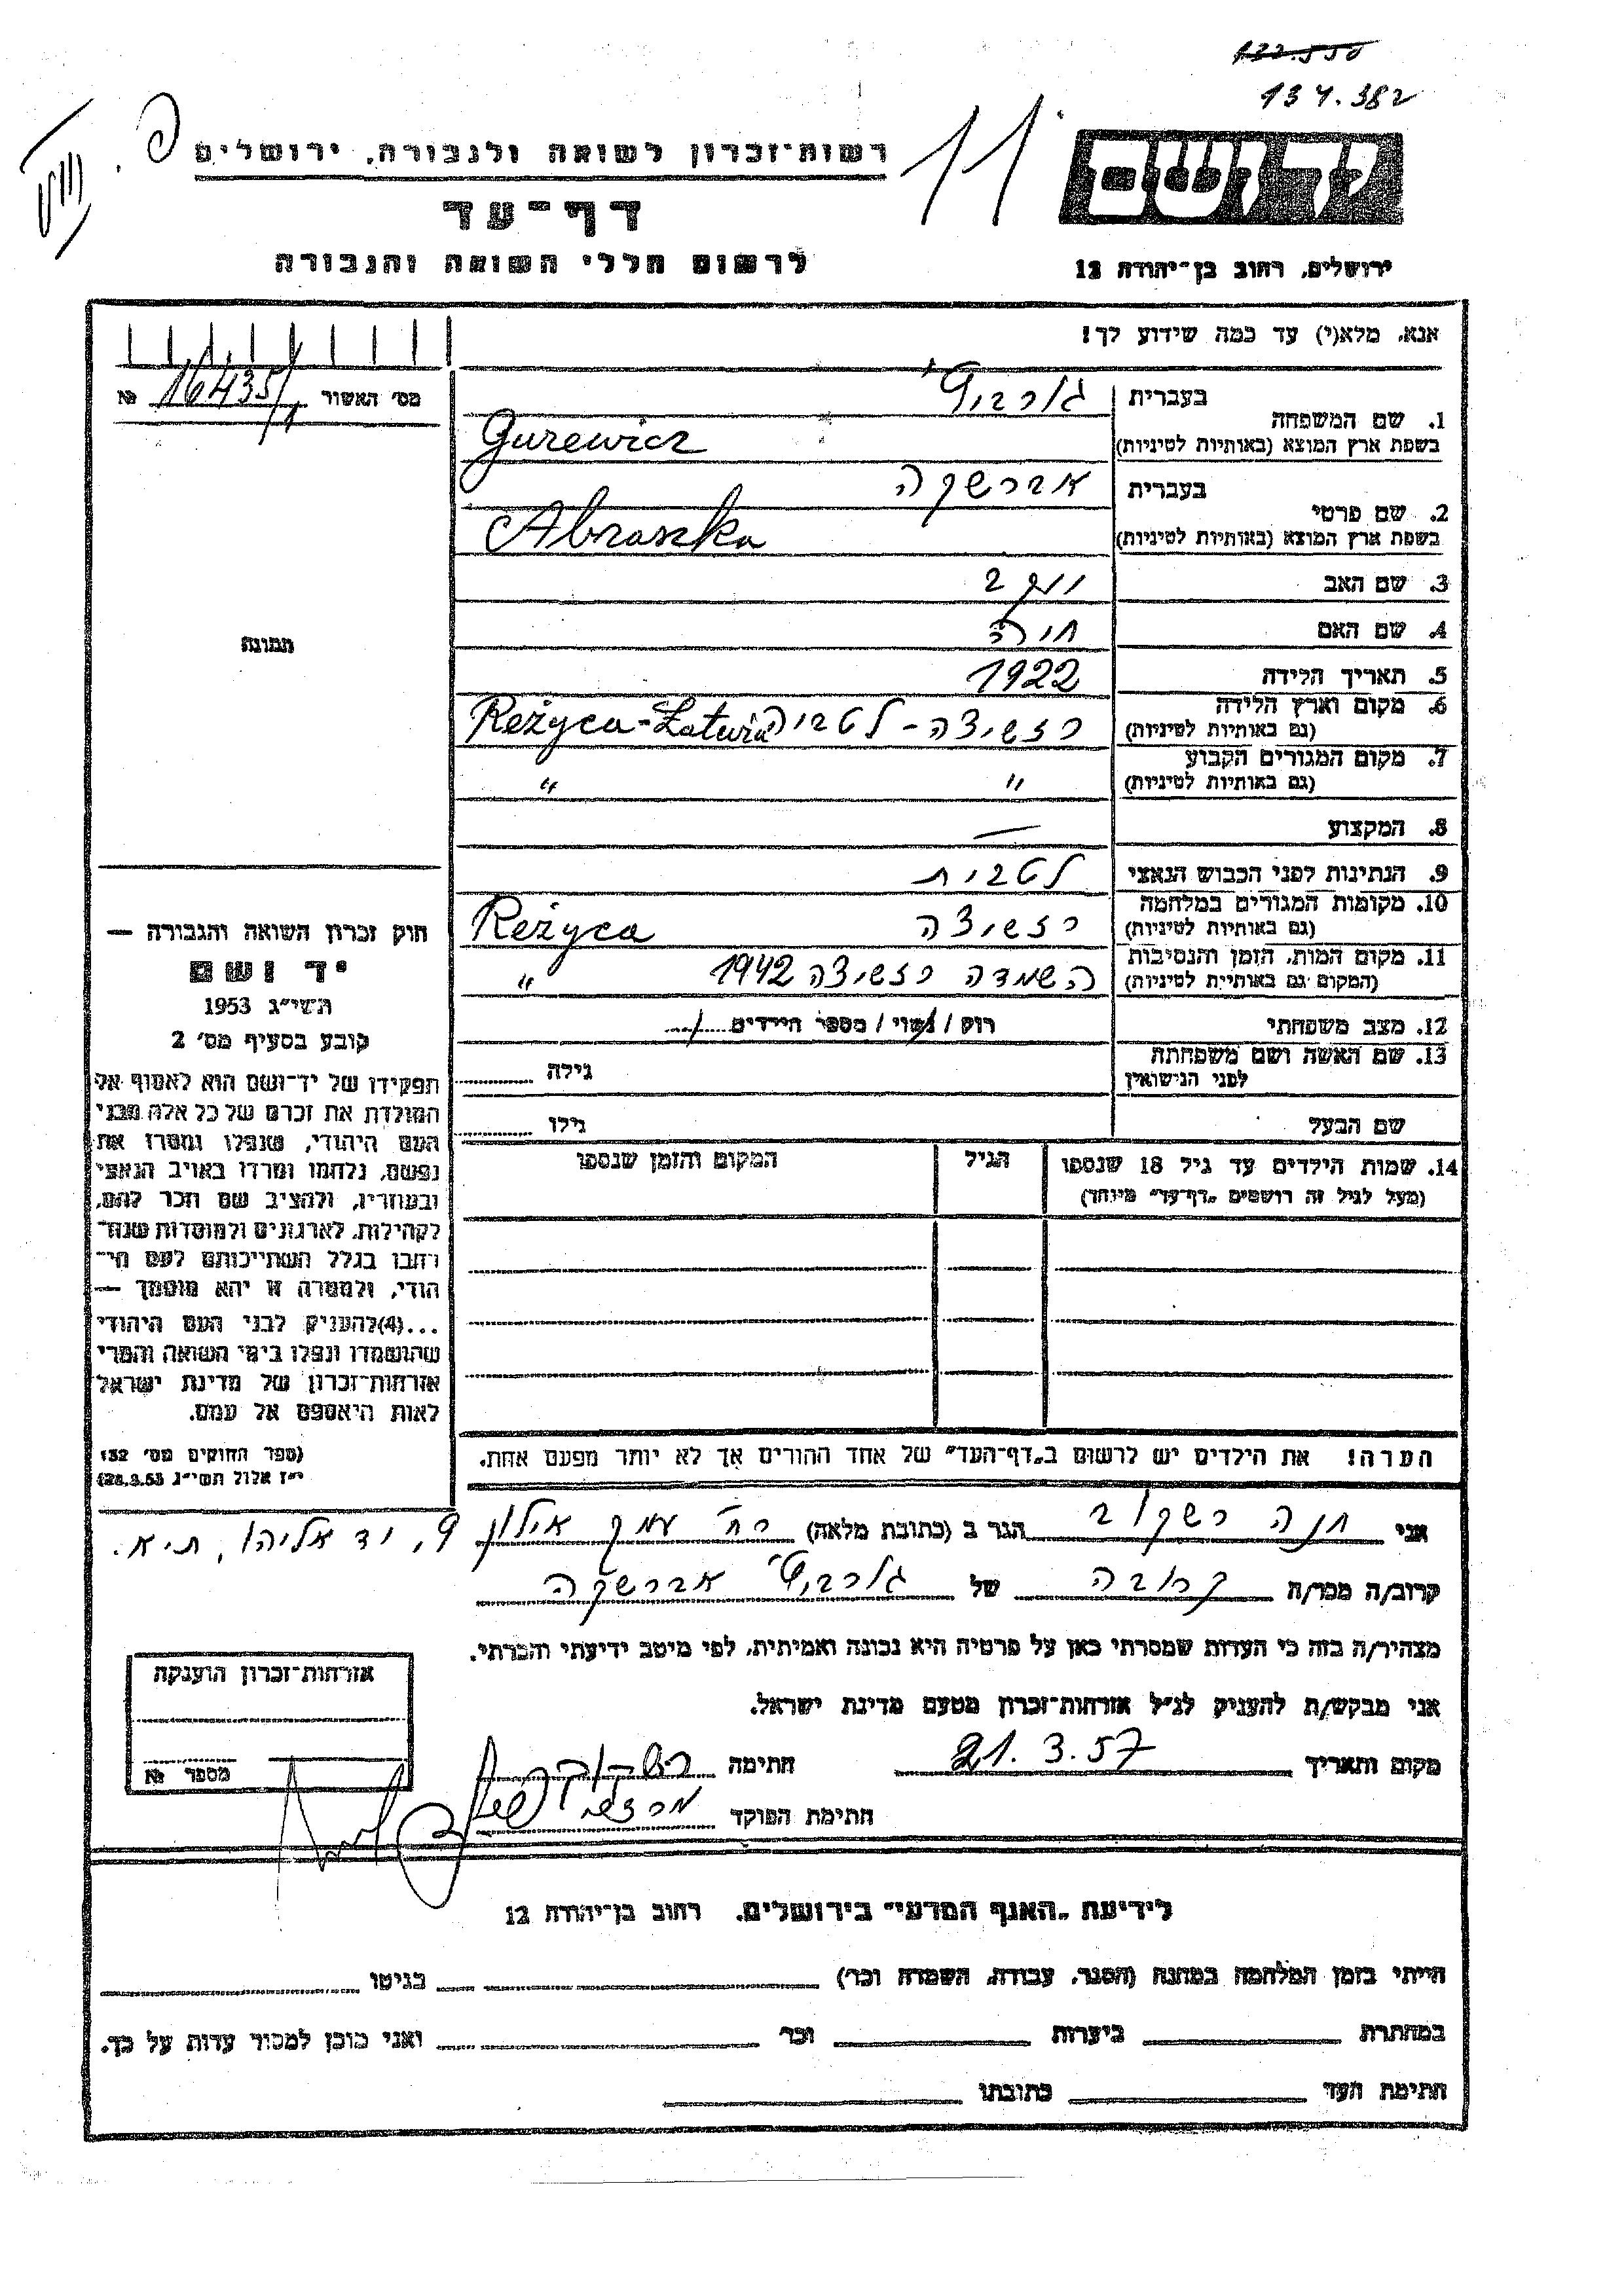 134.382
רשות-זכרון לשואה ולגבורה, ירושלים
11
יד ושם
דף-עד
לרשום חללי השואה והגבורה
ירושלים, רחוב בן-יהודה 12
אנא, מלא(י) עד כמה שידוע לך!
מס׳ האשור № 16435/1
1. שם המשפחה
בעברית
גורביץ׳
בשפת ארץ המוצא (באותיות לטיניות)
Gurewicz
2. שם פרטי
בעברית
אברשקה
בשפת ארץ המוצא (באותיות לטיניות)
Abraszka
3. שם האב
4. שם האם חיה
תמונה
5. תאריך הלידה 1922
6. מקום וארץ הלידה
(גם באותיות לטיניות)
רזשיצה - לטביה Reżyca-Łatwia
7. מקום המגורים הקבוע
(גם באותיות לטיניות)
" "
8. המקצוע —
9. הנתינות לפני הכבוש הנאצי לטבית
10. מקומות המגורים במלחמה
(גם באותיות לטיניות)
רזשיצה Reżyca
11. מקום המות, הזמן והנסיבות
(המקום גם באותיות לטיניות)
השמדה רזשיצה 1942 "
12. מצב משפחתי רווק / נשוי / מספר הילדים
13. שם האשה ושם משפחתה
לפני הנישואין
גילה
שם הבעל גילו
14. שמות הילדים עד גיל 18 שנספו
(מעל לגיל זה רושמים „דף-עד״ מיוחד)
הגיל
המקום והזמן שנספו
חוק זכרון השואה והגבורה —
יד ושם
תשי״ג 1953
קובע בסעיף מס׳ 2
תפקידו של יד-ושם הוא לאסוף אל
המולדת את זכרם של כל אלה מבני
העם היהודי, שנפלו ומסרו את
נפשם, נלחמו ומרדו באויב הנאצי
ובעוזריו, ולהציב שם וזכר להם,
לקהילות, לארגונים ולמוסדות שנח־
רבו בגלל השתייכותם לעם הי־
הודי, ולמטרה זו יהא מוסמך —
...(4)להעניק לבני העם היהודי
שהושמדו ונפלו בימי השואה והמרי
אזרחות-זכרון של מדינת ישראל
לאות היאספם אל עמם.
(ספר החוקים מס׳ 132
י״ז אלול תשי״ג 28.8.53)
הערה! את הילדים יש לרשום ב„דף-העד״ של אחד ההורים אך לא יותר מפעם אחת.
אני חנה רשקוב הגר ב (כתובת מלאה) רח׳ עמק אילון 9, יד אליהו, ת״א.
קרוב/ה מכר/ה קרובה של גורביץ׳ אברשקה
מצהיר/ה בזה כי העדות שמסרתי כאן על פרטיה היא נכונה ואמיתית, לפי מיטב ידיעתי והכרתי.
אני מבקש/ת להעניק לנ״ל אזרחות-זכרון מטעם מדינת ישראל.
מקום ותאריך 21.3.57 חתימה
חתימת הפוקד
אזרחות-זכרון הוענקה
מספר №
לידיעת „האגף המדעי״ בירושלים, רחוב בן-יהודה 12
הייתי בזמן המלחמה במחנה (הסגר, עבודה, השמדה וכו׳) בגיטו
במחתרת ביערות וכו׳ ואני מוכן למסור עדות על כך.
חתימת העד כתובתו